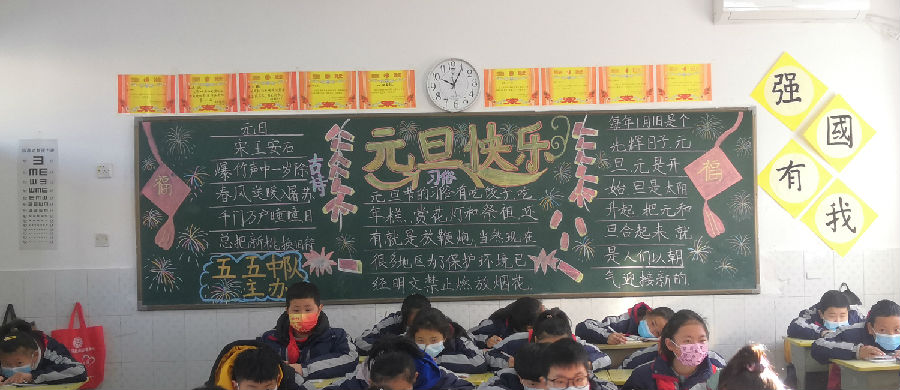 元旦快乐
元旦
宋王安石
爆竹声中一岁除
春风送暖入屠苏
千门万户曈曈日
总把新桃换旧符
古诗
五·五中队
主办
福
习俗
元旦节的习俗有吃饺子,吃
年糕、赏花灯和祭祖,还
有就是放鞭炮,当然现在
很多地区为了保护环境已
经明文禁止燃放烟花。
每年1月1日是个
元旦,元是开
始,旦是太阳
升起,把元和
旦合起来,就
是人们以朝
气迎接新的
福
强
國
有
我